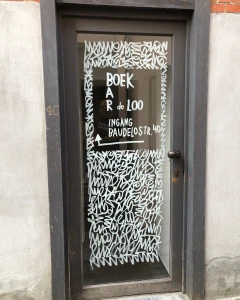 BOEK
BAR de LOO
INGANG
BAUDELOSTR. 40